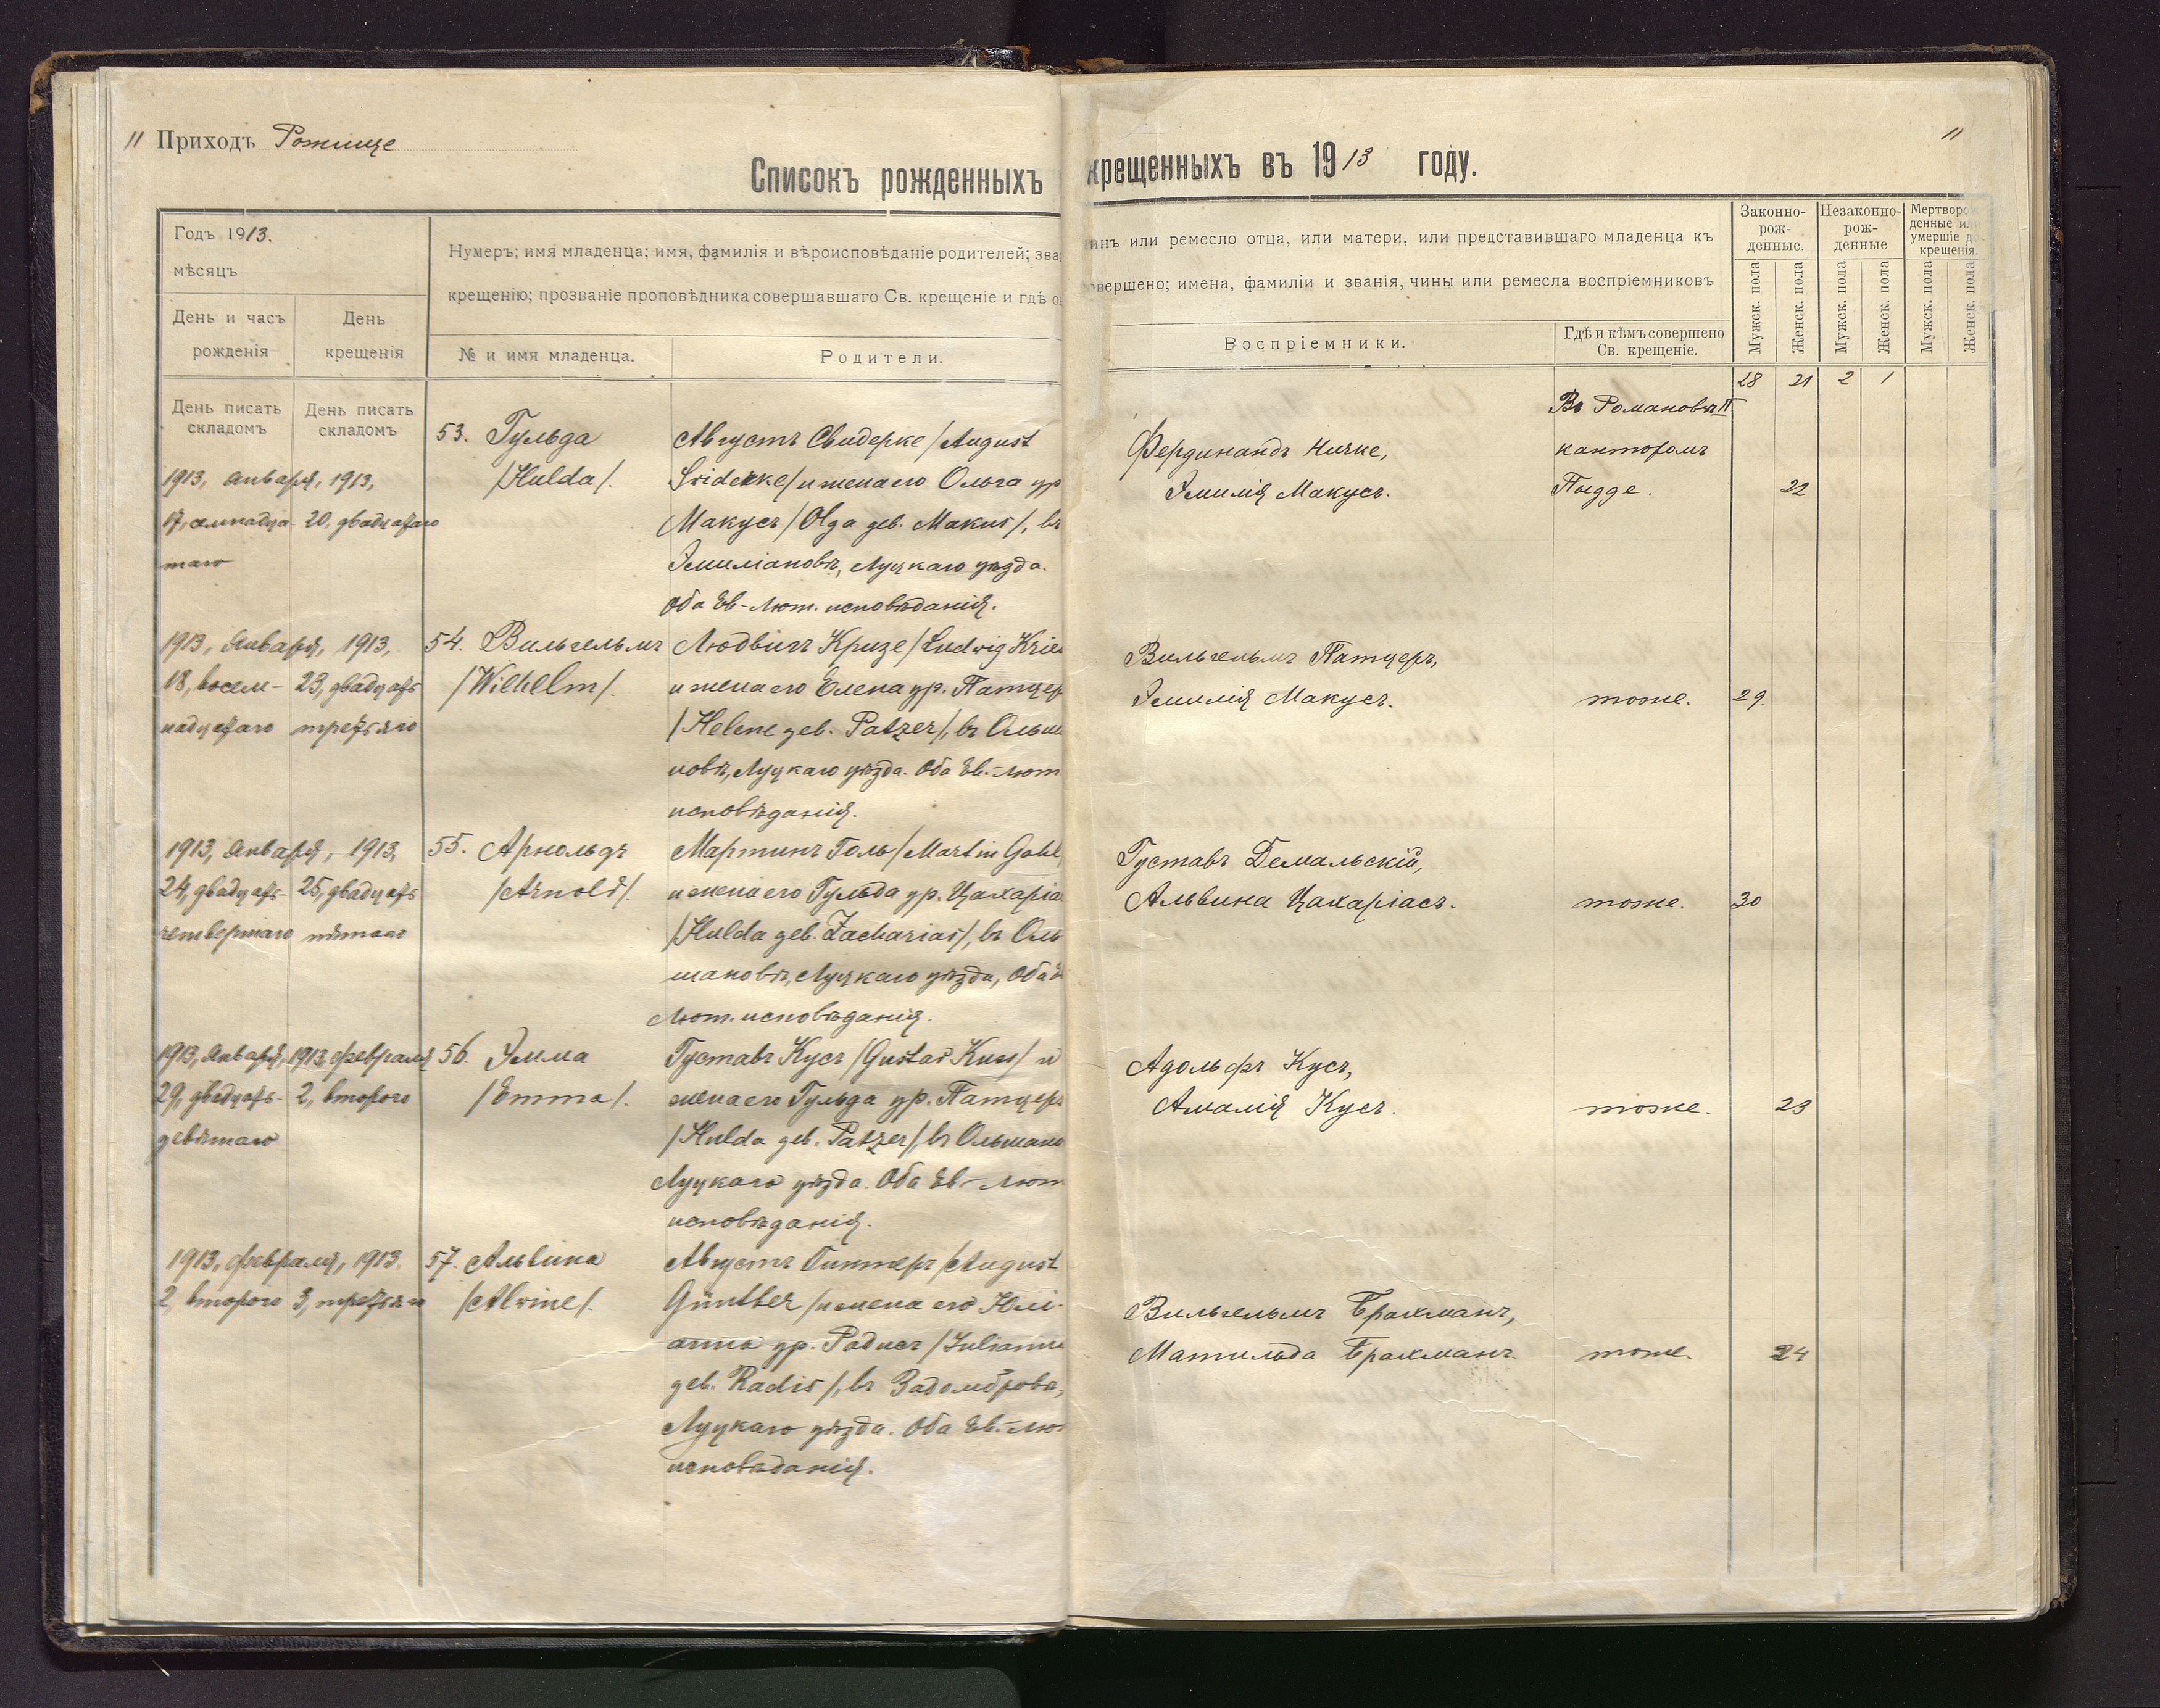 11 Приходъ Рожище
11
Списокъ рожденныхъ крещенныхъ въ 1913 году.
Годъ 1913.
мѣсяцъ
День и часъ рожденія
День крещенія
Нумеръ; имя младенца; имя, фамилія и вѣроисповѣданіе родителей; зва
крещенію; прозваніе проповѣдника совершавшаго Св. крещеніе и гдѣ
№ и имя младенца.
Родители.
инъ или ремесло отца, или матери, или представившаго младенца къ
овершено; имена, фамиліи и званія, чины или ремесла воспріемниковъ
Воспріемники.
Гдѣ и кѣмъ совершено
Св. крещеніе.
Законно-
рож-
денные.
Незаконно-
рож-
денные
Мертворо
денные ил
умершіе до
крещенія.
Мужск. пола
Женск. пола
Мужск. пола
Женск. пола
Мужск. пола
Женск. пола
28 21 2 1
День писать
складомъ
День писать
складомъ
1913, января, 1913,
17, семнадца- 20, двадцатаго
таго
53. Гульда
/Hulda/.
Августъ Свидерке /August
Sviderke/ и жена его Ольга ур
Макусъ /Olga geb. Makus/, въ
Эмиліановѣ, Луцкаго уѣзда.
Оба Ев-Лют. исповѣданія.
Фердинандъ Ничке,
Эмилія Макусъ.
Въ Романовѣ II
канторомъ
Пыдде.
22
1913, Января, 1913,
18, восем- 23, двадцать
надцатаго третьяго
54. Вильгельмъ
/Wilhelm/.
Людвигъ Кризе /Ludwig Krie
и жена его Елена ур. Патцер
/Helene geb. Patzer/, въ Ольш
новѣ, Луцкаго уѣзда. Оба Ев.-Лют
исповѣданія.
Вильгельмъ Патцеръ,
Эмилія Макусъ.
тоже.
29.
1913, Января, 1913,
24, двадцать- 25, двадцать
четвертаго пятаго
55. Арнольдъ
/Arnold/.
Мартинъ Голь /Martin Gohl/
и жена его Гульда ур. Цахаріа
/Hulda geb. Zacharias/, въ Оль
шановѣ, Луцкаго уѣзда, Оба
Лют. исповѣданія.
Густавъ Демальскій,
Альвина Цахаріасъ.
тоже.
30
1913, Января, 1913, февраля
29, двадцать- 2, второго
девятаго
56. Эмма
/Emma/.
Густавъ Кусъ /Gustav Kuss/ и
жена его Гульда ур. Патцеръ
/Hulda geb. Patzer/, въ Ольшано
Луцкаго уѣзда. Оба Ев-Лют
исповѣданія.
Адольфъ Кусъ,
Амалія Кусъ.
тоже.
23
1913, февраля, 1913.
2, второго 3, третьяго
57. Альвина
/Alvine/.
Августъ Гинтеръ /August
Günther/ и жена его Юлі-
анна ур. Радисъ /Julianne
geb. Radis/, въ Задомброва,
Луцкаго уѣзда. Оба Ев.-Лю
исповѣданія.
Вильгельмъ Брахманъ,
Матильда Брахманъ.
тоже.
24